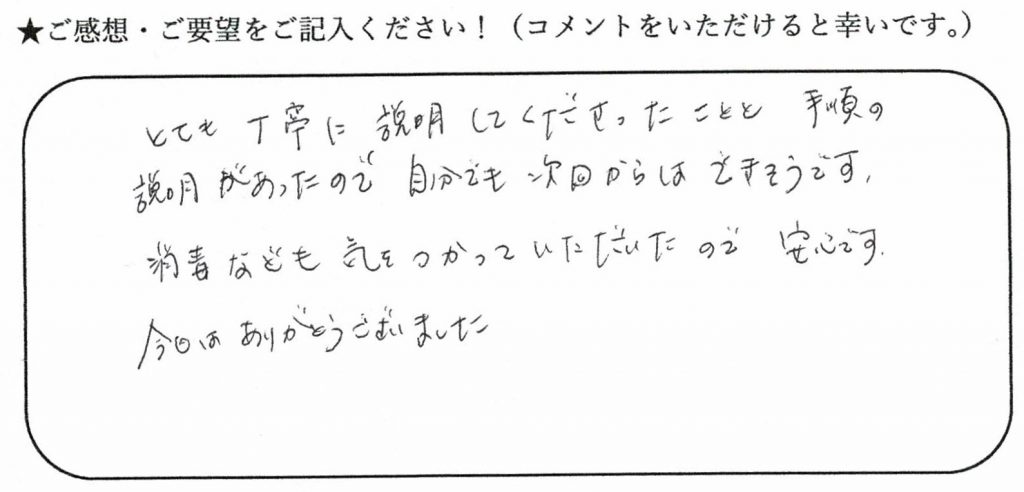 ★ご感想・ご要望をご記入ください！（コメントをいただけると幸いです。）
とても丁寧に説明してくださったことと手順の
説明があったので自分でも次回からはできそうです。
消毒なども気をつかっていただいたので安心です。
今日はありがとうございました